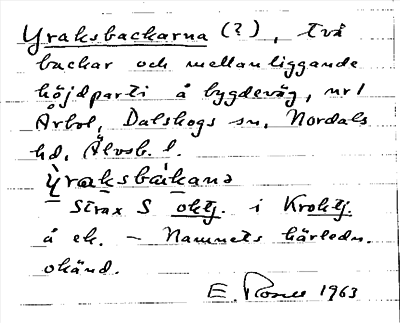 Yraksbackarna (?), två
backar och mellanliggande
höjdparti å bygdeväg, nr 1
Årbol, Dalskogs sn, Nordals
hd, Älvsb. l.
ỳraksbàkana
Strax S oktj. i Kroktj.
å ek. – Namnets härledn.
okänd.
E. 1963